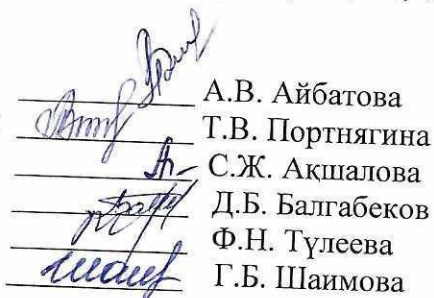 А.В. Айбатова
Т.В. Портнягина
С.Ж. Ақшалова
Д.Б. Балгабеков
Ф.Н. Түлеева
Г.Б. Шаимова